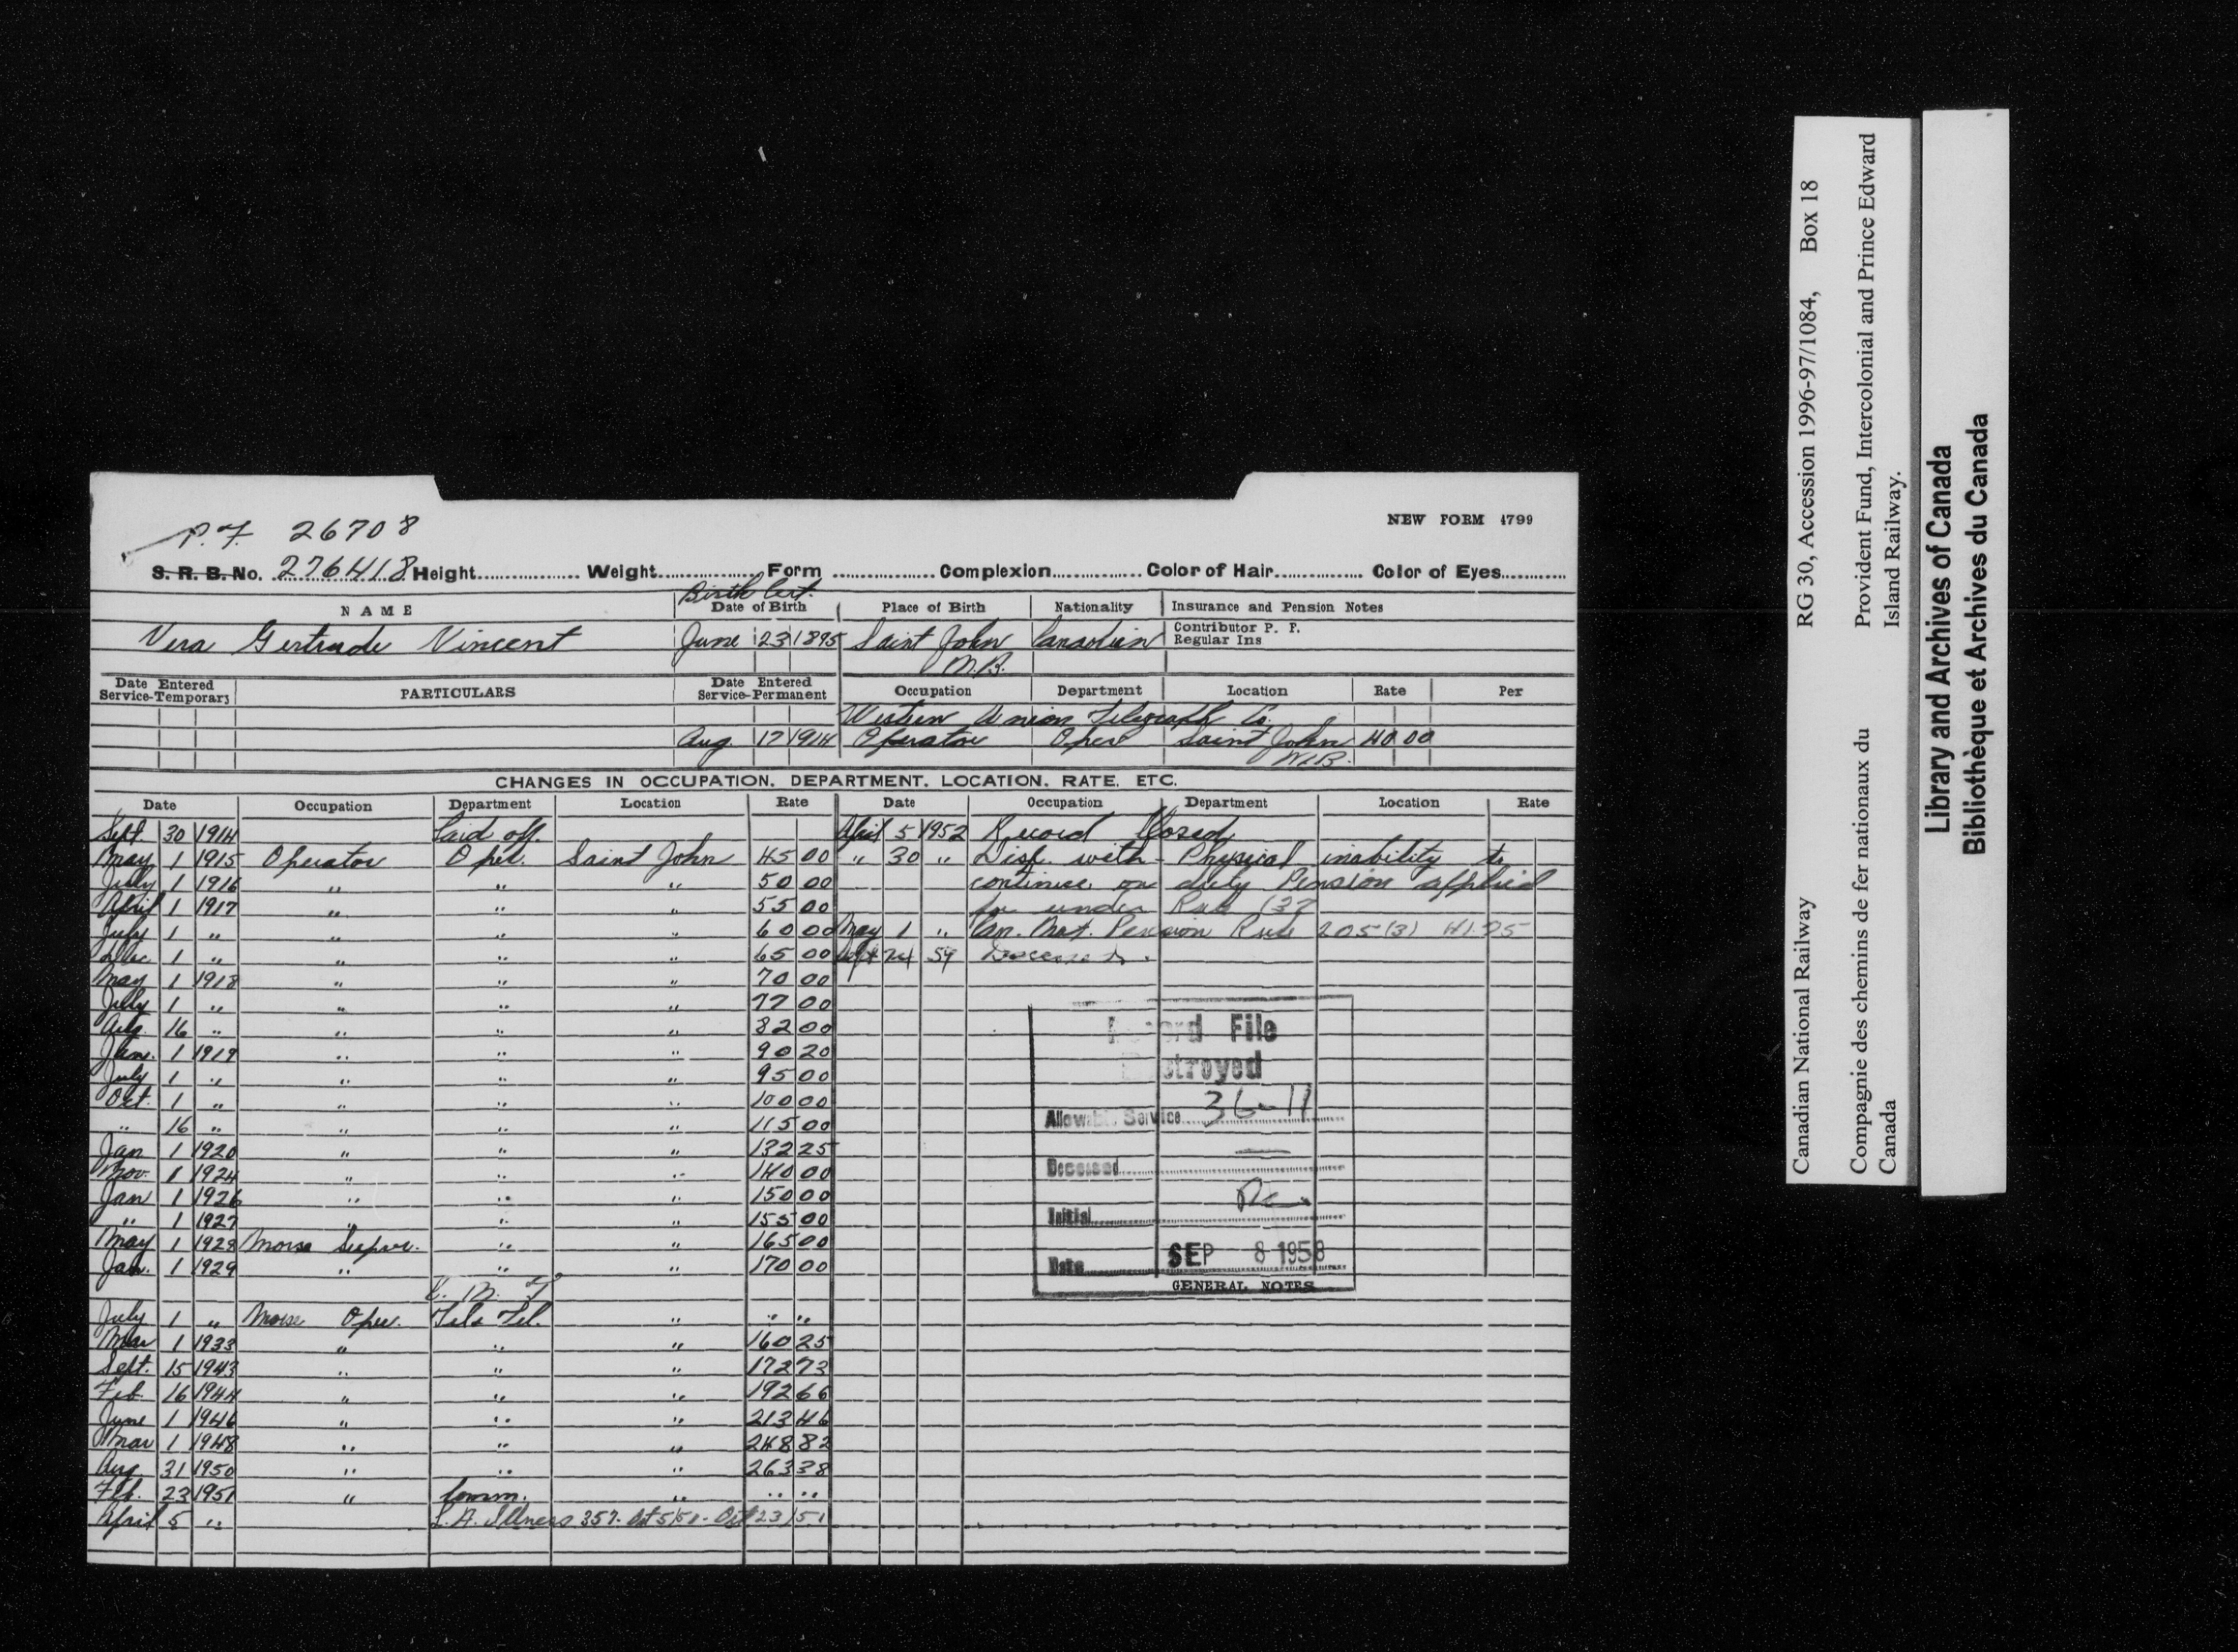 P.F. 26708
NEW FORM 4799
S. R. B. No. 276418 Height Weight Form Complexion Color of Hair Color of Eyes
Birth Cert.
NAME Date of Birth Place of Birth Nationality Insurance and Pension Notes
Vera Gertrude Vincent June 23 1895 Saint John Canadian Contributor P. F.
Regular Ins
N.B.
Date Entered Service-Temporary PARTICULARS Date Entered Service-Permanent Occupation Department Location Rate Per
Western Union Telegraph Co.
Aug. 17 1914 Operator Oper Saint John 40 00
N.B.
CHANGES IN OCCUPATION, DEPARTMENT, LOCATION, RATE, ETC.
Date Occupation Department Location Rate Date Occupation Department Location Rate
Sept. 30 1914 Laid off. April 5 1952 Record Closed
May 1 1915 Operator Oper. Saint John 45 00 " 30 " Disp. with - Physical inability to
July 1 1916 " " " 50 00 continue on duty Pension applied
April 1 1917 " " " 55 00 for under Rule
July 1 " " " " 60 00 May 1 " Can. Nat. Pension Rule 205(3)
Dec 1 " " " " 65 00 Sept 24 59 Deceased.
May 1 1918 " " " 70 00
July 1 " " " " 77 00
Aug. 16 " " " " 82 00
Jan. 1 1919 " " " 90 20
July 1 " " " " 95 00
Oct. 1 " " " " 100 00
" 16 " " " " 115 00
Jan 1 1920 " " " 132 25
Nov. 1 1924 " " " 140 00
Jan 1 1926 " " " 150 00
" 1 1927 " " " 155 00
May 1 1928 Morse Supvr. " " 165 00
Jan. 1 1929 " " " 170 00
July 1 " Morse Oper. Tel. " " "
Mar 1 1933 " " " 160 25
Sept. 15 1943 " " " 172 73
Feb. 16 1944 " " " 192 66
June 1 1946 " " " 213 46
Mar 1 1948 " " " 248 82
Aug 31 1950 " " " 263 38
Feb. 23 1951 " Comm. " " "
April 5 " L.A. Illness
Record File
Destroyed
Allowable Service 36-11
Deceased
Initial
Date SEP 8 1958
GENERAL NOTES
Canadian National Railway RG 30, Accession 1996-97/1084, Box 18
Compagnie des chemins de fer nationaux du Provident Fund, Intercolonial and Prince Edward
Canada Island Railway.
Library and Archives of Canada
Bibliothèque et Archives du Canada